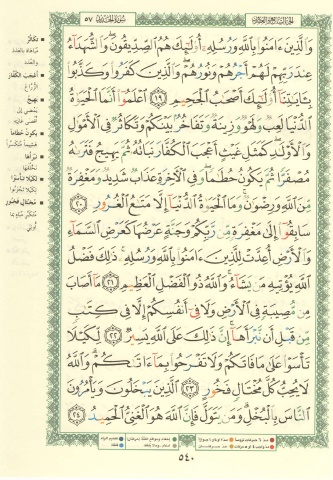 سُورَةُ الحَدِيدِ ٥٧
وَالَّذِينَ ءَامَنُوا بِاللَّهِ وَرُسُلِهِ أُولَٰئِكَ هُمُ الصِّدِّيقُونَ وَالشُّهَدَاءُ
عِندَ رَبِّهِمْ لَهُمْ أَجْرُهُمْ وَنُورُهُمْ وَالَّذِينَ كَفَرُوا وَكَذَّبُوا
بِـَٔايَٰتِنَا أُولَٰئِكَ أَصْحَٰبُ الْجَحِيمِ ١٩ اعْلَمُوا أَنَّمَا الْحَيَوٰةُ
الدُّنْيَا لَعِبٌ وَلَهْوٌ وَزِينَةٌ وَتَفَاخُرٌ بَيْنَكُمْ وَتَكَاثُرٌ فِي الْأَمْوَٰلِ
وَالْأَوْلَٰدِ كَمَثَلِ غَيْثٍ أَعْجَبَ الْكُفَّارَ نَبَاتُهُ ثُمَّ يَهِيجُ فَتَرَىٰهُ
مُصْفَرًّا ثُمَّ يَكُونُ حُطَٰمًا وَفِي الْآخِرَةِ عَذَابٌ شَدِيدٌ وَمَغْفِرَةٌ
مِّنَ اللَّهِ وَرِضْوَٰنٌ وَمَا الْحَيَوٰةُ الدُّنْيَا إِلَّا مَتَٰعُ الْغُرُورِ ٢٠
سَابِقُوا إِلَىٰ مَغْفِرَةٍ مِّن رَّبِّكُمْ وَجَنَّةٍ عَرْضُهَا كَعَرْضِ السَّمَاءِ
وَالْأَرْضِ أُعِدَّتْ لِلَّذِينَ ءَامَنُوا بِاللَّهِ وَرُسُلِهِ ذَٰلِكَ فَضْلُ
اللَّهِ يُؤْتِيهِ مَن يَشَاءُ وَاللَّهُ ذُو الْفَضْلِ الْعَظِيمِ ٢١ مَا أَصَابَ
مِن مُّصِيبَةٍ فِي الْأَرْضِ وَلَا فِي أَنفُسِكُمْ إِلَّا فِي كِتَٰبٍ
مِّن قَبْلِ أَن نَّبْرَأَهَا إِنَّ ذَٰلِكَ عَلَى اللَّهِ يَسِيرٌ ٢٢ لِّكَيْلَا
تَأْسَوْا عَلَىٰ مَا فَاتَكُمْ وَلَا تَفْرَحُوا بِمَا ءَاتَىٰكُمْ وَاللَّهُ
لَا يُحِبُّ كُلَّ مُخْتَالٍ فَخُورٍ ٢٣ الَّذِينَ يَبْخَلُونَ وَيَأْمُرُونَ
النَّاسَ بِالْبُخْلِ وَمَن يَتَوَلَّ فَإِنَّ اللَّهَ هُوَ الْغَنِيُّ الْحَمِيدُ ٢٤
٥٤٠
تكاثر
أعجب الكفار
يهيج
يكون حطاماً
نبرأها
لكيلا تأسوا
مختال فخور